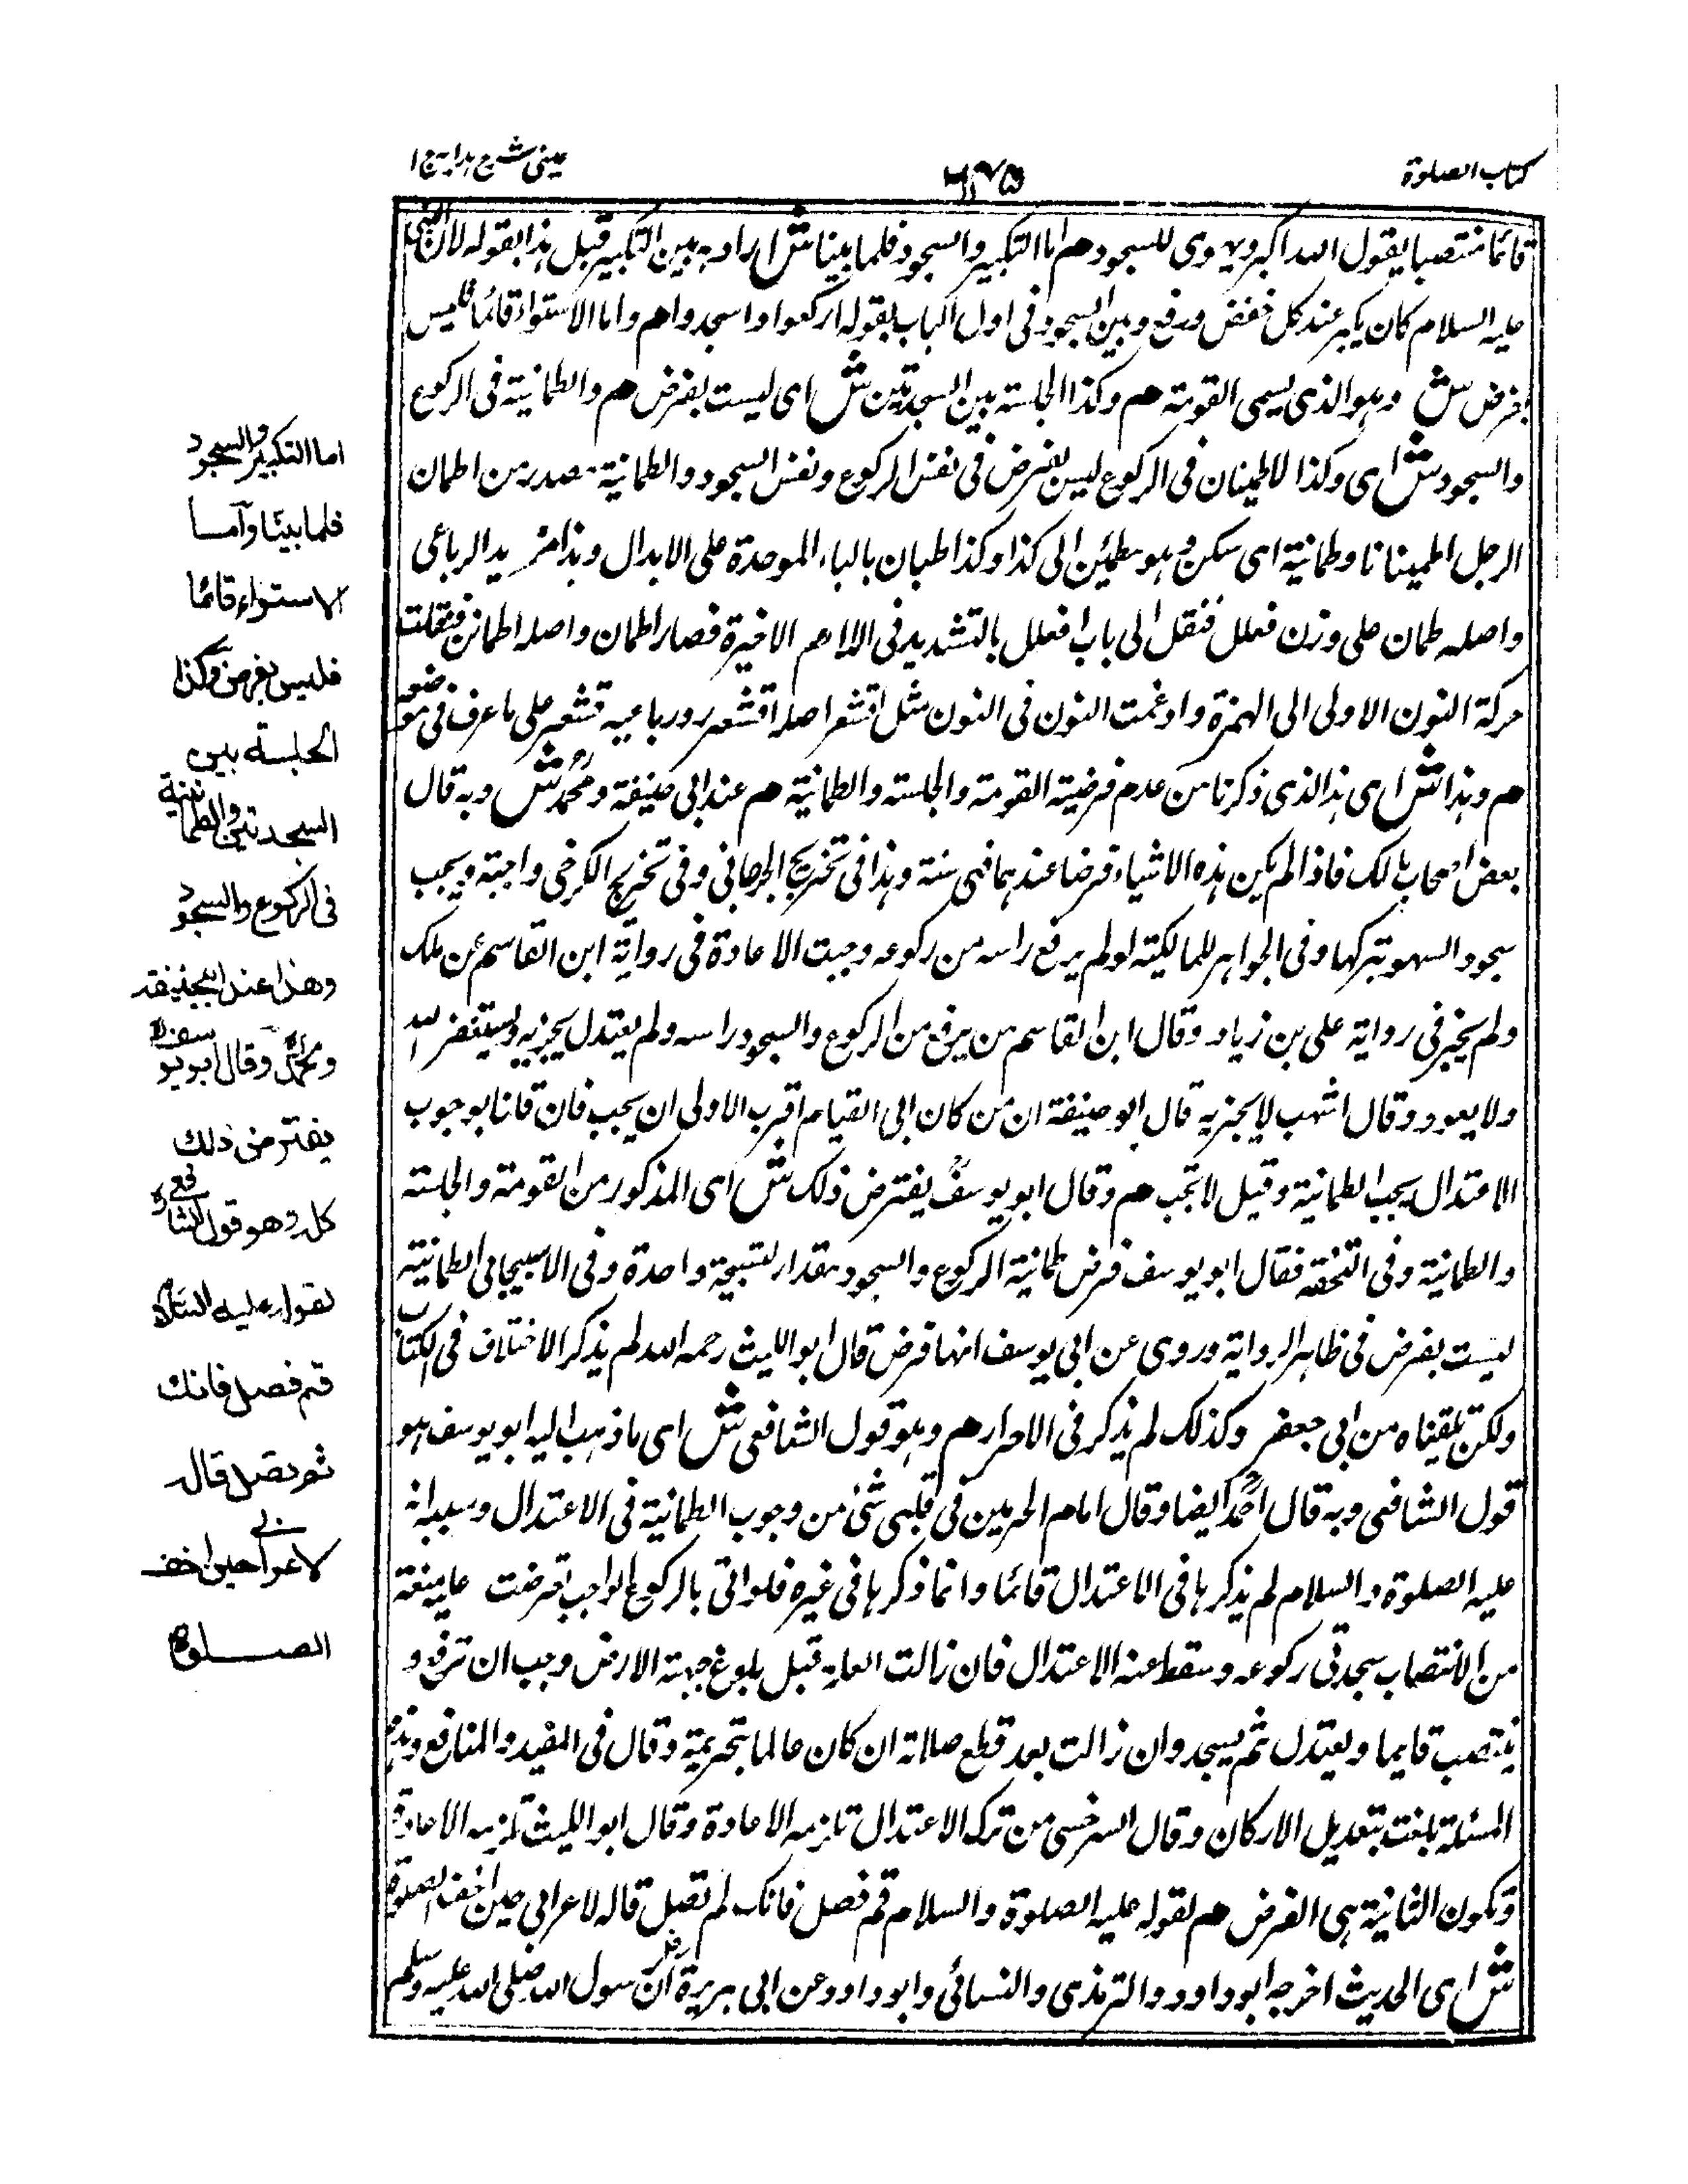 كتاب الصلوة
عینی شرح ہدایہ ج ۱
قائما منتصبا يقول الله اكبر ويهوى للسجود هم اما التكبير والسجود فلما بينا ش اراد به بين التكبير قبل هذا بقوله لان النبى
عليه السلام كان يكبر عند كل خفض ورفع وبين السجود فى اول الباب بقوله اركعوا واسجدوا هم واما الاستواء قائما فليس
بفرض ش وهو الذى يسمى القومة هم وكذا الجلسة بين السجدتين ش اى ليست بفرض هم والطمانية فى الركوع
والسجود ش اى وكذا الاطمينان فى الركوع ليس بفرض فى نفس الركوع ونفس السجود والطمانية مصدر من اطمان
الرجل اطمينانا وطمانية اى سكن وهو مطمئن الى كذا وكذا اطبان بالباء الموحدة على الابدال وهذا مزيد الرباعى
واصله طمان على وزن فعلل فنقل الى باب افعلل بالتشديد فى اللام الاخيرة فصار اطمان واصله اطمانن فنقلت
حركة النون الاولى الى الهمزة وادغمت النون فى النون مثل اقشعر اصله اقشعرر ورباعيه قشعر على ما عرف فى موضعه
هم وهذا ش اى هذا الذى ذكرنا من عدم فرضية القومة والجلسة والطمانية هم عند ابى حنيفة ومحمد ش وبه قال
بعض اصحاب مالك فاذا لم يكن هذه الاشياء فرضا عندهما فهى سنة وهذا فى تخريج الجرجانى وفى تخريج الكرخى واجبة ويجب
سجود السهو بتركها وفى الجواهر للمالكية لو لم يرفع راسه من ركوعه وجبت الاعادة فى رواية ابن القاسم عن ملك
ولم يجز فى رواية على بن زياد وقال ابن القاسم من يرفع من الركوع والسجود راسه ولم يعتدل يجزيه ويستغفر الله
ولا يعود وقال اشهب لا يجزيه قال ابو حنيفة ان من كان الى القيام اقرب الاولى ان يجب فان قلنا بوجوب
الاعتدال يجب الطمانية وقيل لا تجب هم وقال ابو يوسف يفترض ذلك ش اى المذكور من القومة والجلسة
والطمانية وفى التحفة فقال ابو يوسف فرض طمانية الركوع والسجود مقدار تسبيحة واحدة وفى الاسبيجابى الطمانية
ليست بفرض فى ظاهر الرواية وروى عن ابى يوسف انها فرض قال ابو الليث رحمه الله لم يذكر الاختلاف فى الكتاب
ولكن تلقيناه من ابى جعفر وكذلك لم يذكر فى الاسرار هم وهو قول الشافعى ش اى ما ذهب اليه ابو يوسف هو
قول الشافعى وبه قال احمد ايضا وقال امام الحرمين فى قلبى شئ من وجوب الطمانية فى الاعتدال وسببه انه
عليه الصلوة والسلام لم يذكرها فى الاعتدال قائما وانما ذكرها فى غيره فلو اتى بالركوع الواجب فعرضت علة منعته
من الانتصاب سجد فى ركوعه وسقط عنه الاعتدال فان زالت العلة قبل بلوغ جبهته الارض وجب ان ترفع و
ينتصب قايما ويعتدل ثم يسجد وان زالت بعد قطع صلاته ان كان عالما بتحريمه وقال فى المفيد والمنافع وهذه
المسئلة بلغت بتعديل الاركان وقال السرخسى من ترك الاعتدال تلزمه الاعادة وقال ابو الليث تلزمه الاعادة
وتكون الثانية هى الفرض هم لقوله عليه الصلوة والسلام قم فصل فانك لم تصل قاله لاعرابى حين اخف الصلوة
ش اى الحديث اخرجه ابو داود والترمذى والنسائى وابو داود عن ابى هريرة ان رسول الله صلى الله عليه وسلم
اما التكبير والسجود
فلما بينا واما
الاستواء قائما
فليس بفرض وكذا
الجلسة بين
السجدتين والطمانينة
فى الركوع والسجود
وهذا عند ابيحنيفة
ومحمد وقال ابو يوسف
يفترض ذلك
كله وهو قول الشافعى
لقوله عليه السلام
قم فصل فانك
لم تصل قاله
لاعرابى حين اخف
الصلوة